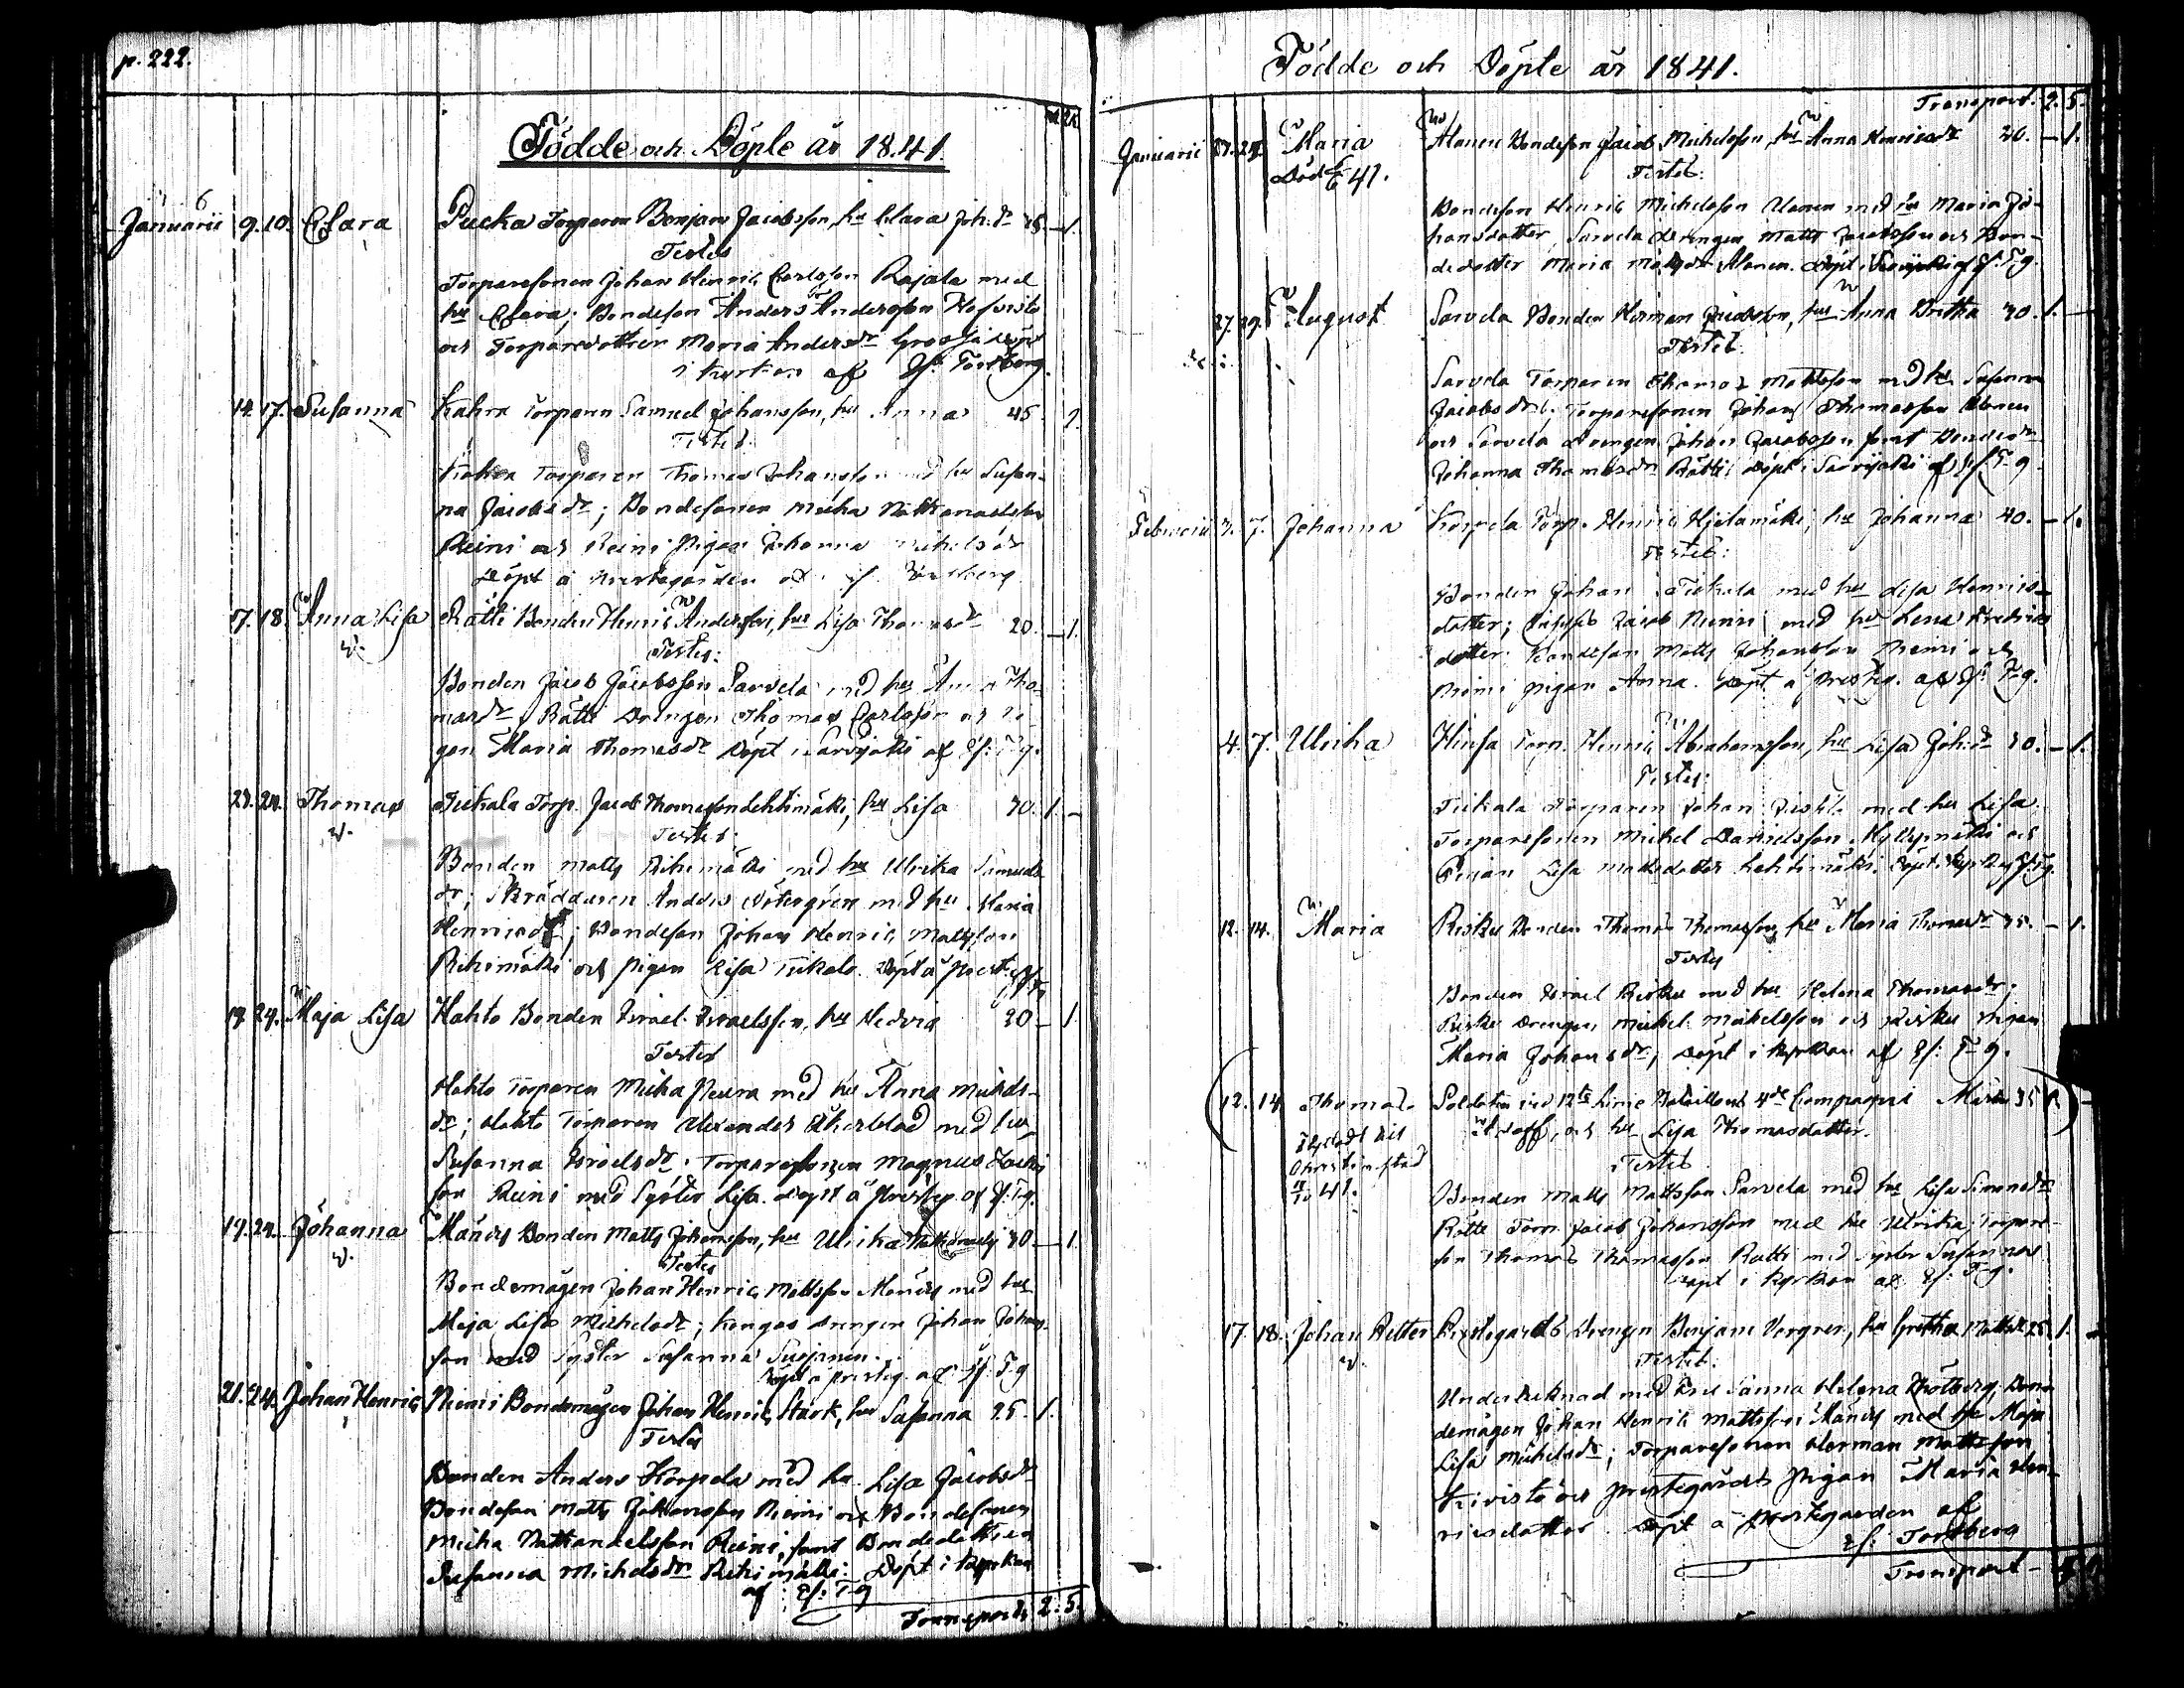 p. 222.
Födde och Döpte år 1841.
Januarii 9. 10. Clara Pucka Torparen Benjam Jacobsson, hu Clara Joh.dr 35. — 1.
Testes
Torparesonen Johan Henric Carlsson Rajala med
hu Clara; Bondeson Anders Andersson
och Torparedottren Maria Andersdr
i kyrkan af Forsberg.
14. 17. Susanna Kahra Torparen Samuel Johansson, hu Anna 45. 1.
Testes
Kahra Torparen Thomas Johansson med hu Susan-
na Jacobsdr; Bondesonen Micha Nathanaelsson
Reini och Reini Pigan Johanna Michelsdr
Döpt å Prestegården af Forsberg
17. 18. Anna Lisa Rätti Bonden Henric Andersson, hu Lisa Thomasdr 20. — 1.
Testes:
Bonden Jacob Jacobsson Sarvela med hu Anna Tho-
masdr, Rätti Drengen Thomas Carlsson och Pi-
gan Maria Thomasdr Döpt i Sarvijoki af F-g.
23. 24. Thomas Tiikala Torp. Jacob Thomasson Lehtimäki, hu Lisa 30. 1. —
Testes
Bonden Matts Rihimäki med hu Ulrika Samuels
dr; Skräddaren Anders med hu Maria
Henricsdr; Bondeson Johan Henric Mattsson
Rihimäki och Pigan Lisa Tiikala Döpt å Prest.
19. 24. Maja Lisa Hahto Bonden Israel Israelsson, hu Hedvig 30 — 1
Testes
Hahto Torparen Micha Peura med hu Anna Michels-
dr; Hahto Torparen Alexander Åkerblad med hu
Susanna Israelsdr; Torparesonen Magnus
son Reini med Syster Lisa. Döpt å Presteg. af F-g.
19. 24. Johanna Mändy Bonden Matts Johansson, hu Ulrika 30 — 1.
Testes
Bondemågen Johan Henric Mattsson Mändy med hu
Maja Lisa Michelsdr; Kangas Drengen Johan Johans-
son med Syster Susanna
Döpt å Presteg. af F-g
21. 24. Johan Henric Niemi Bondemågen Johan Henric Stark, hu Susanna 25. 1.
Testes
Bonden Anders Korpela med hu Lisa Jacobsdr
Bondeson Matts Johansson Niemi och Bondesonen
Micha Nathanaelsson Reini, samt Bondedottren
Susanna Michelsdr Rihimäki. Döpt i kyrkan
af F-g
Transport 2. 5.
Födde och Döpte år 1841.
Transport. 2. 5.
Januarii Maria Alanen Bondeson Jacob Michelsson, hu Anna Henricsdr 20. — 1.
Död 41. Testes:
Bondeson Henric Michelsson Alanen med hu Maria Jo-
hansdotter, Sarvela Drengen Matts Jacobsson och Bon-
dedotter Maria Matsdr Alanen. Döpt i Sarvijoki af F-g.
27. 29. August Sarvela Bonden Herman Jacobsson, hu Anna Brita 30. 1. —
Testes.
Sarvela Torparen Thomas Mattsson med hu Susanna
Jacobsdr; Torparesonen Johan Thomasson Alanen
och Sarvela Drengen Johan Jacobsson samt Bondedr
Johanna Thomasdr Rätti; Döpt i Sarvijoki af F-g
Februarii 3. 7. Johanna Korpela Torp. Henric Hjelamäki, hu Johanna 40. — 1.
Testes:
Bonden Johan Tiikala med hu Lisa Henrics-
dotter; Jacob Niemi med hu Lena Fredrics
dotter Bondeson Matts Johansson Niemi och
Niemi Pigan Anna. Döpt å Presteg. af F-g.
4. 7. Ulrika Hinsa Torp. Henric Abrahamsson, hu Lisa Joh.dr 30. — 1.
Testes:
Tiikala Torparen Johan med hu Lisa
Torparesonen Michel Danielsson Myllymäki och
Pigan Lisa Mattsdotter Lehtimäki. Döpt i kyrk. af F-g.
12. 14. Maria Risku Bonden Thomas Thomasson, hu Maria Thomasdr 35. — 1.
Testes
Bonden Israel Risku med hu Helena Thomasdr;
Risku Drengen Michel Michelsson och Risku Pigan
Maria Johansdr, Döpt i kyrkan af F-g.
(12. 14 Thomas Soldaten vid 12te Linie Bataillons 4de Compagni 35 1) —
och hu Lisa Thomasdotter.
Christinestad
41. Testes
Bonden Matts Mattsson Sarvela med hu Lisa Simonsdr
Rätti Torp. Jacob Johansson med hu Ulrika; Torpare-
son Thomas Thomasson Rätti med Syster Susanna
Döpt i kyrkan af F-g.
17. 18. Johan Petter Prestegårds Drengen Benjam Vergren, hu Gretha Mattsdr 25. 1. —
Testes:
Undertecknad med Fru Sanna Helena Bon-
demågen Johan Henric Mattsson Mändy med hu Maja
Lisa Michelsdr; Torparesonen Herman Mattsson
Kivistö och Prestegårds Pigan Maria Hen-
ricsdotter. Döpt å Prestegården af
Forsberg
Transport —